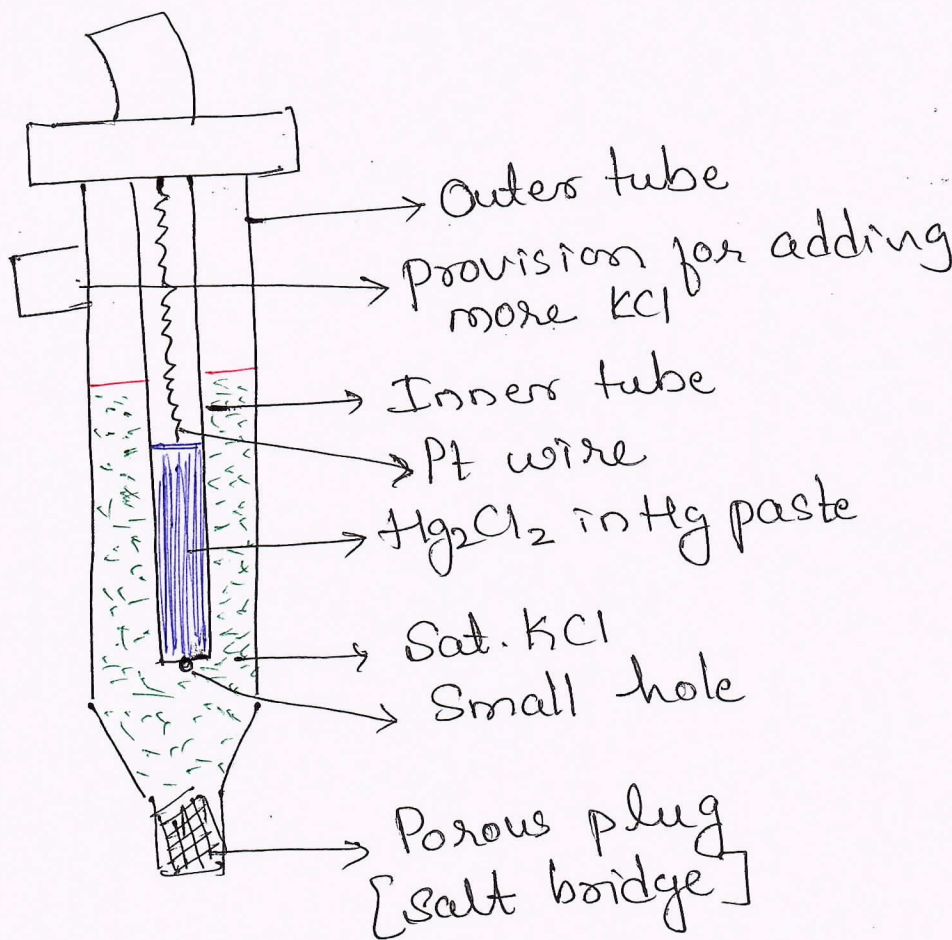 Outer tube
provision for adding
more KCl
Inner tube
Pt wire
Hg₂Cl₂ in Hg paste
Sat. KCl
Small hole
Porous plug
[salt bridge]